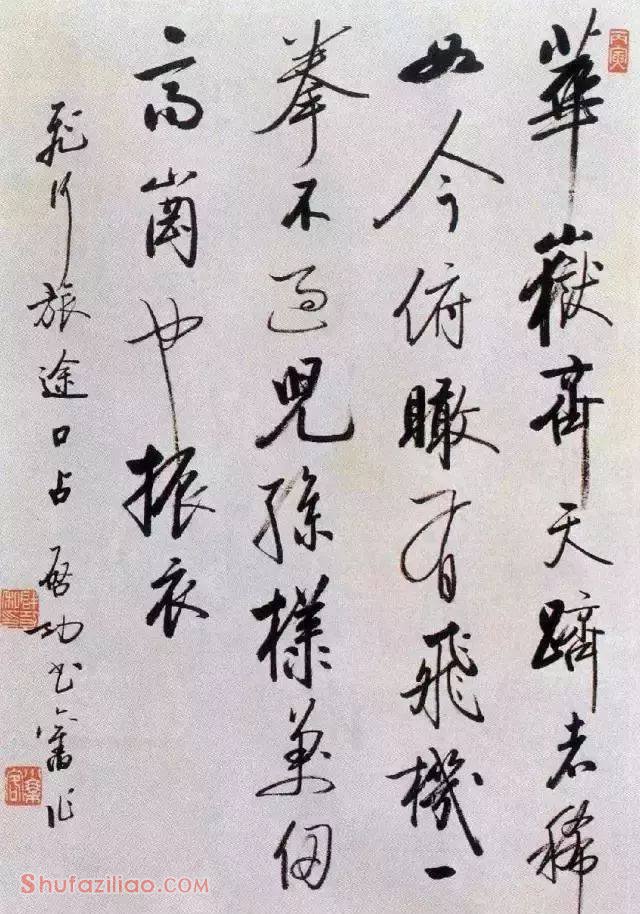 丙寅
華嶽齊天躋者稀
如今俯瞰有飛機一
拳不過兒孫樣萬仞
高崗也振衣
飛行旅途口占 啓功書舊作
Shufaziliao.com